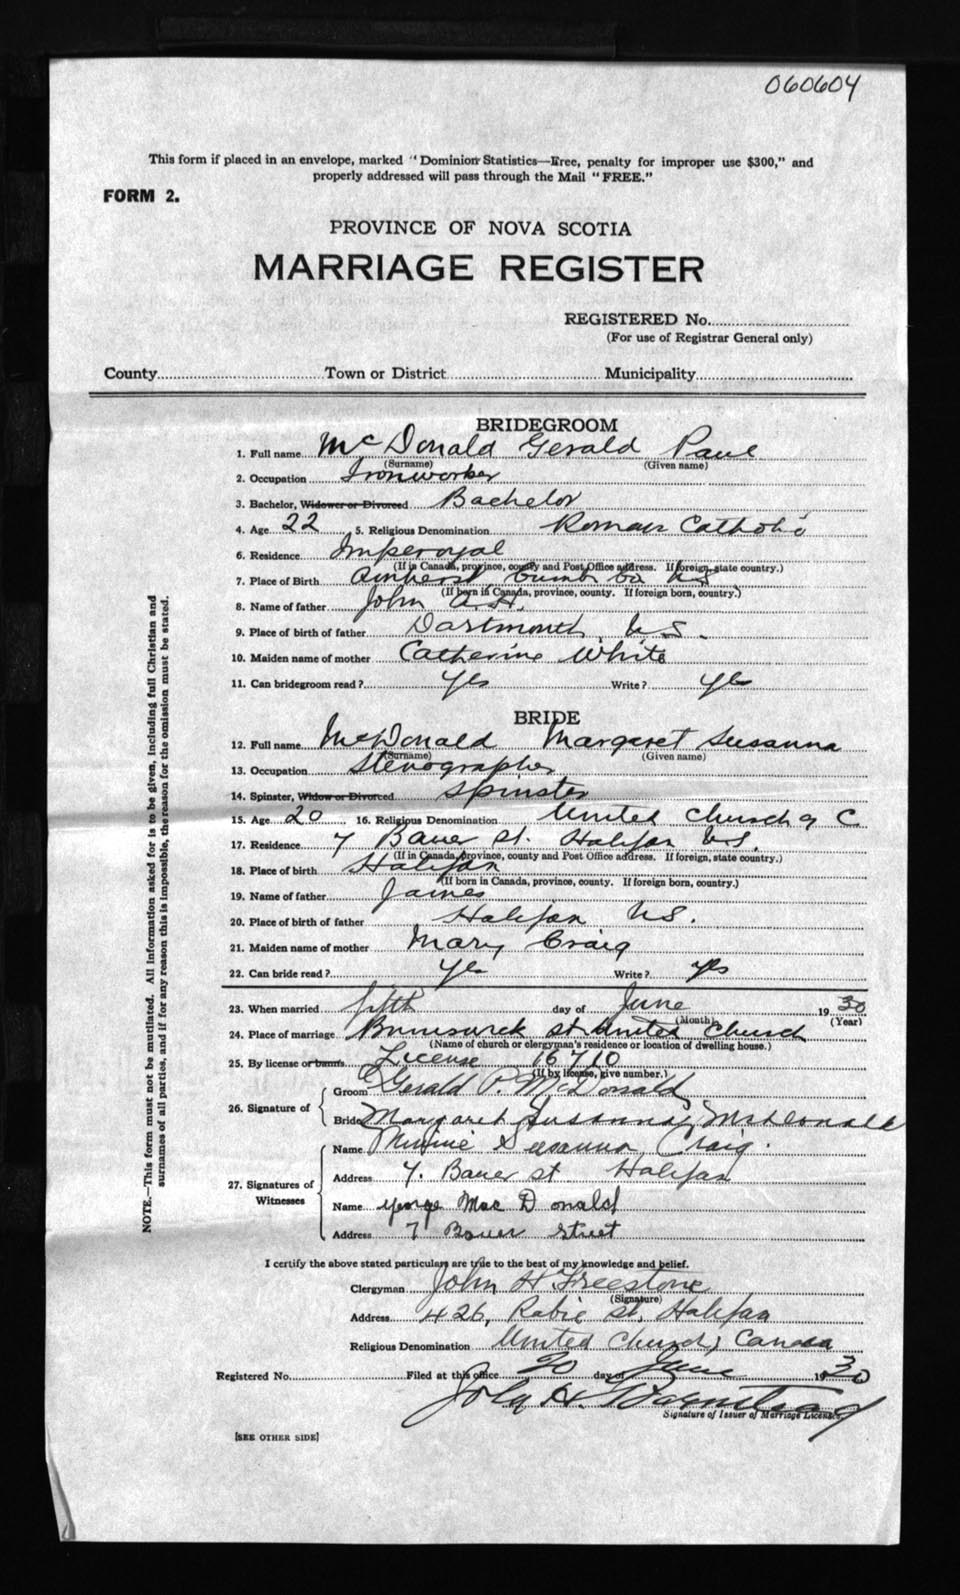 060604
This form if placed in an envelope, marked "Dominion Statistics—Free, penalty for improper use $300," and
properly addressed will pass through the Mail "FREE."
FORM 2.
PROVINCE OF NOVA SCOTIA
MARRIAGE REGISTER
REGISTERED No.
(For use of Registrar General only)
County Town or District Municipality
BRIDEGROOM
1. Full name McDonald Gerald Paul
(Surname) (Given name)
2. Occupation Ironworker
3. Bachelor, Widower or Divorced Bachelor
4. Age 22 5. Religious Denomination Roman Catholic
6. Residence Imperoyal
(If in Canada, province, county and Post Office address. If foreign, state country.)
7. Place of Birth Amherst, Cumb Co NS
(If born in Canada, province, county. If foreign born, country.)
8. Name of father John A.H.
9. Place of birth of father Dartmouth, N.S.
10. Maiden name of mother Catherine White
11. Can bridegroom read? yes Write? yes
BRIDE
12. Full name McDonald Margaret Susanna
(Surname) (Given name)
13. Occupation Stenographer
14. Spinster, Widow or Divorced Spinster
15. Age 20 16. Religious Denomination United Church of C
17. Residence 7 Bauer St. Halifax N.S.
(If in Canada, province, county and Post Office address. If foreign, state country.)
18. Place of birth Halifax
(If born in Canada, province, county. If foreign born, country.)
19. Name of father James
20. Place of birth of father Halifax N.S.
21. Maiden name of mother Mary Craig
22. Can bride read? yes Write? yes
23. When married fifth day of June 1930
(Month) (Year)
24. Place of marriage Brunswick St. United Church
(Name of church or clergyman's residence or location of dwelling house.)
25. By license or banns License 16710
(If by license, give number.)
26. Signature of
Groom Gerald P. McDonald
Bride Margaret Susanna McDonald
27. Signatures of Witnesses
Name Minnie Susanna Craig.
Address 7. Bauer st Halifax
Name George MacDonald
Address 7 Bauer Street
I certify the above stated particulars are true to the best of my knowledge and belief.
Clergyman John H Freestone
(Signature)
Address 426, Robie St, Halifax
Religious Denomination United Church, Canada
Registered No. Filed at this office 20 day of June 1930
John H.
Signature of Issuer of Marriage Licenses
[SEE OTHER SIDE]
NOTE.—This form must not be mutilated. All information asked for is to be given, including full Christian and
surnames of all parties, and if for any reason this is impossible, the reason for the omission must be stated.